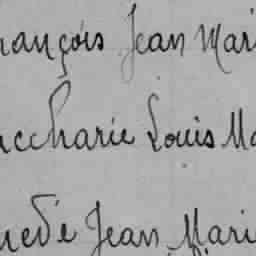 rançois Jean Mari
ccharie Louis Ma
uedé Jean Mari